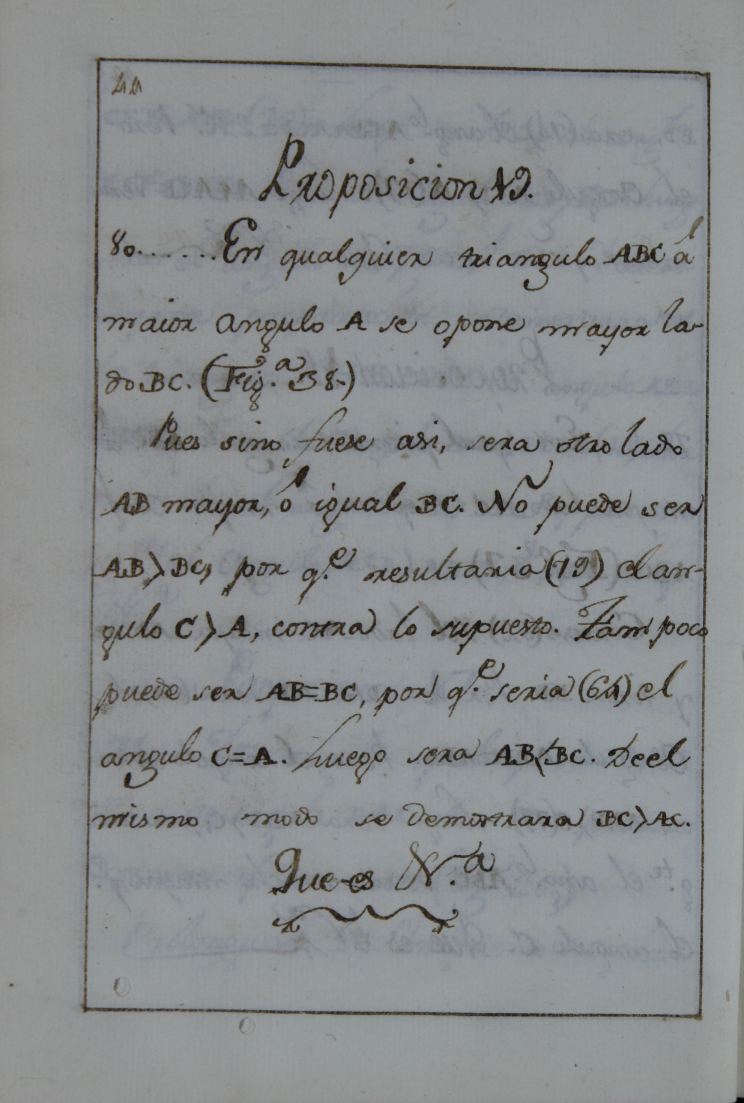 44
Proposicion 19.
80.......En qualquier triangulo ABC á
maior angulo A se opone mayor la-
do BC. (Fig.ª 38.)
Pues sino fuese asi, sera otro lado
AB mayor, ó igual BC. No puede ser
AB>BC, por q.e resultaria (79) el an-
gulo C>A, contra lo supuesto. Tampoco
puede ser AB=BC, por q.e seria (64) el
angulo C=A. Luego sera AB<BC. De el
mismo modo se demostrara BC>AC.
Que es